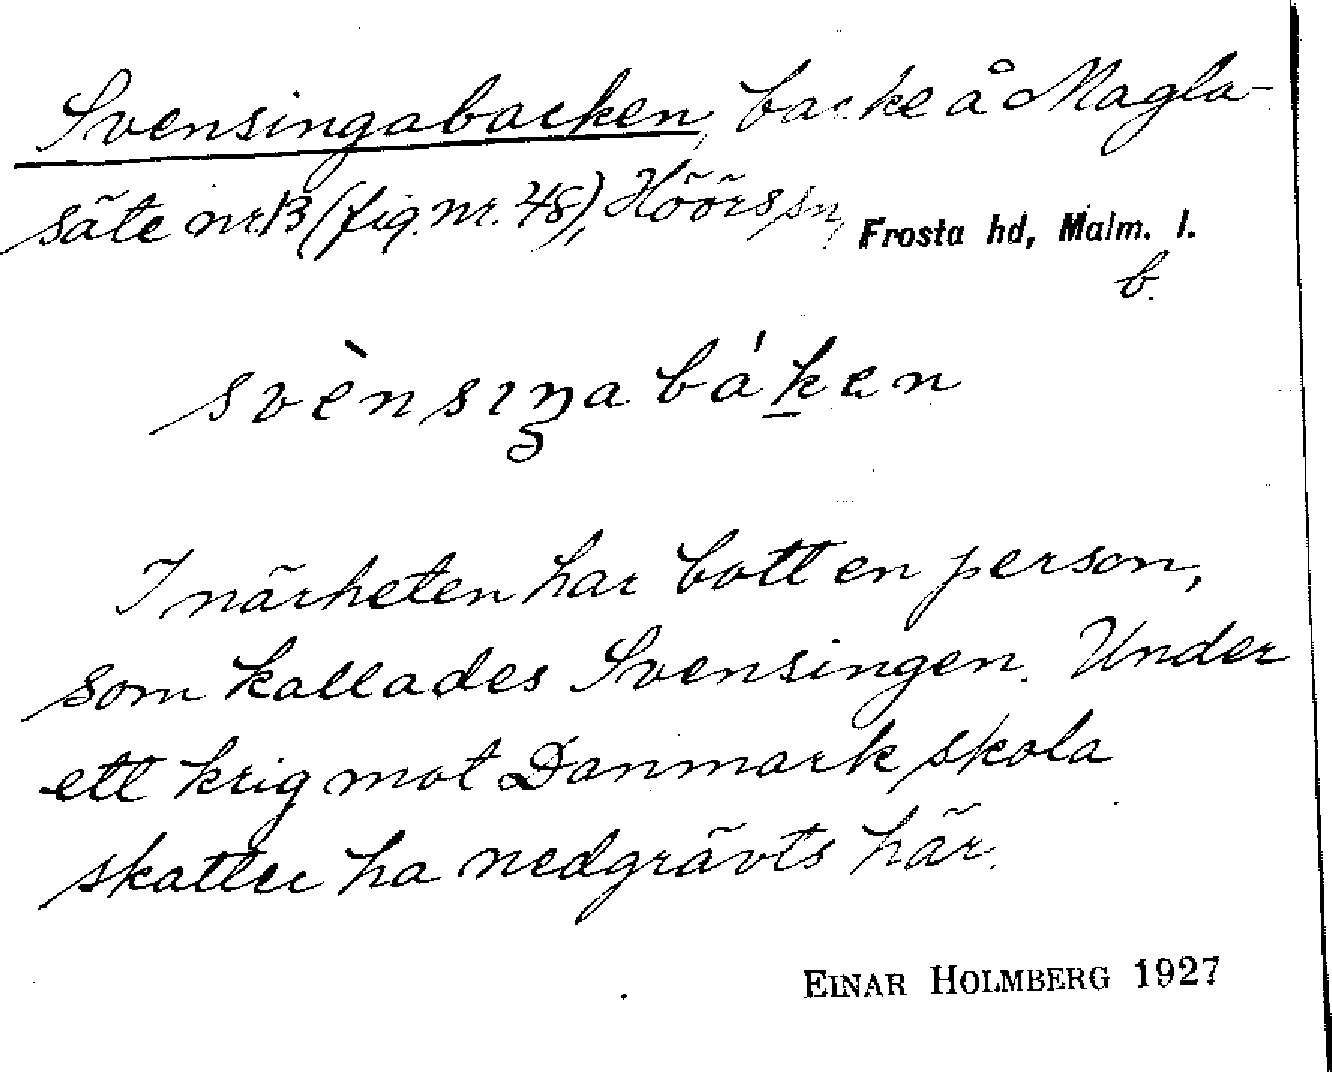 Svensingabacken, backe å Magla-
säte nr 13 (fig. nr. 48), Höörs sn, Frosta hd, Malm. l.
b.
svènsıŋabáken
I närheten har bott en person,
som kallades Svensingen. Under
ett krig mot Danmark skola
skatter ha nedgrävts här.
EINAR HOLMBERG 1927